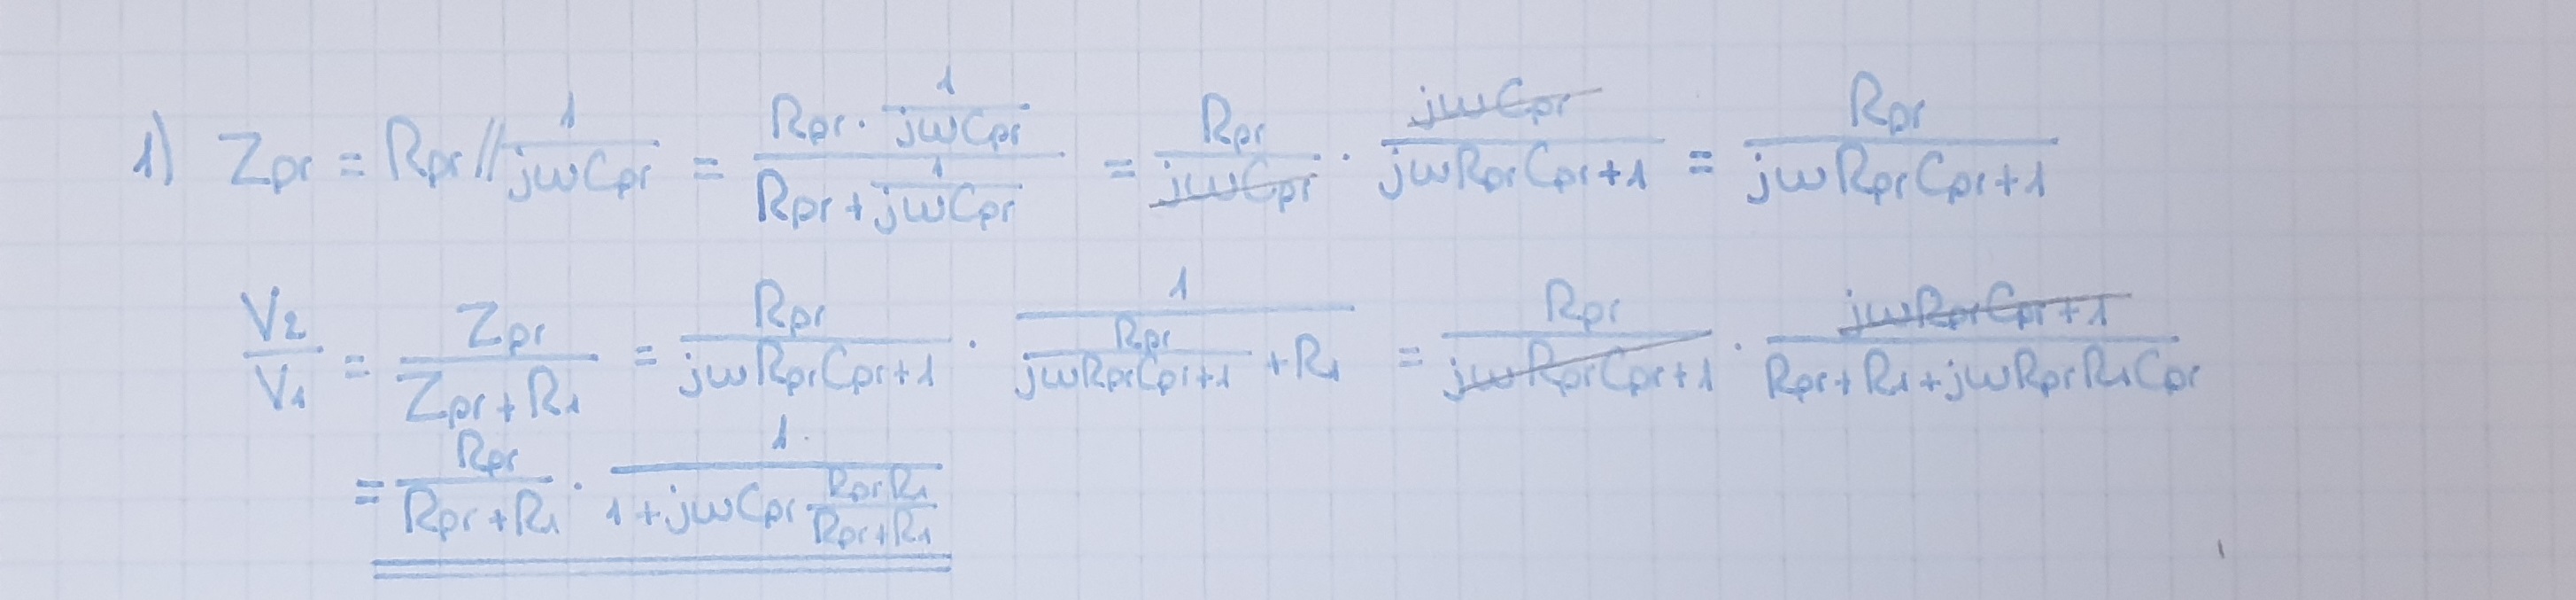 1) Zpr = Rpr // 1/(jωCpr) = (Rpr · 1/(jωCpr))/(Rpr + 1/(jωCpr)) = Rpr/(jωCpr) · jωCpr/(jωRprCpr+1) = Rpr/(jωRprCpr+1)
V2/V1 = Zpr/(Zpr+R1) = Rpr/(jωRprCpr+1) · 1/(Rpr/(jωRprCpr+1) + R1) = Rpr/(jωRprCpr+1) · (jωRprCpr+1)/(Rpr+R1+jωRprR1Cpr)
= Rpr/(Rpr+R1) · 1/(1+jωCpr RprR1/(Rpr+R1))